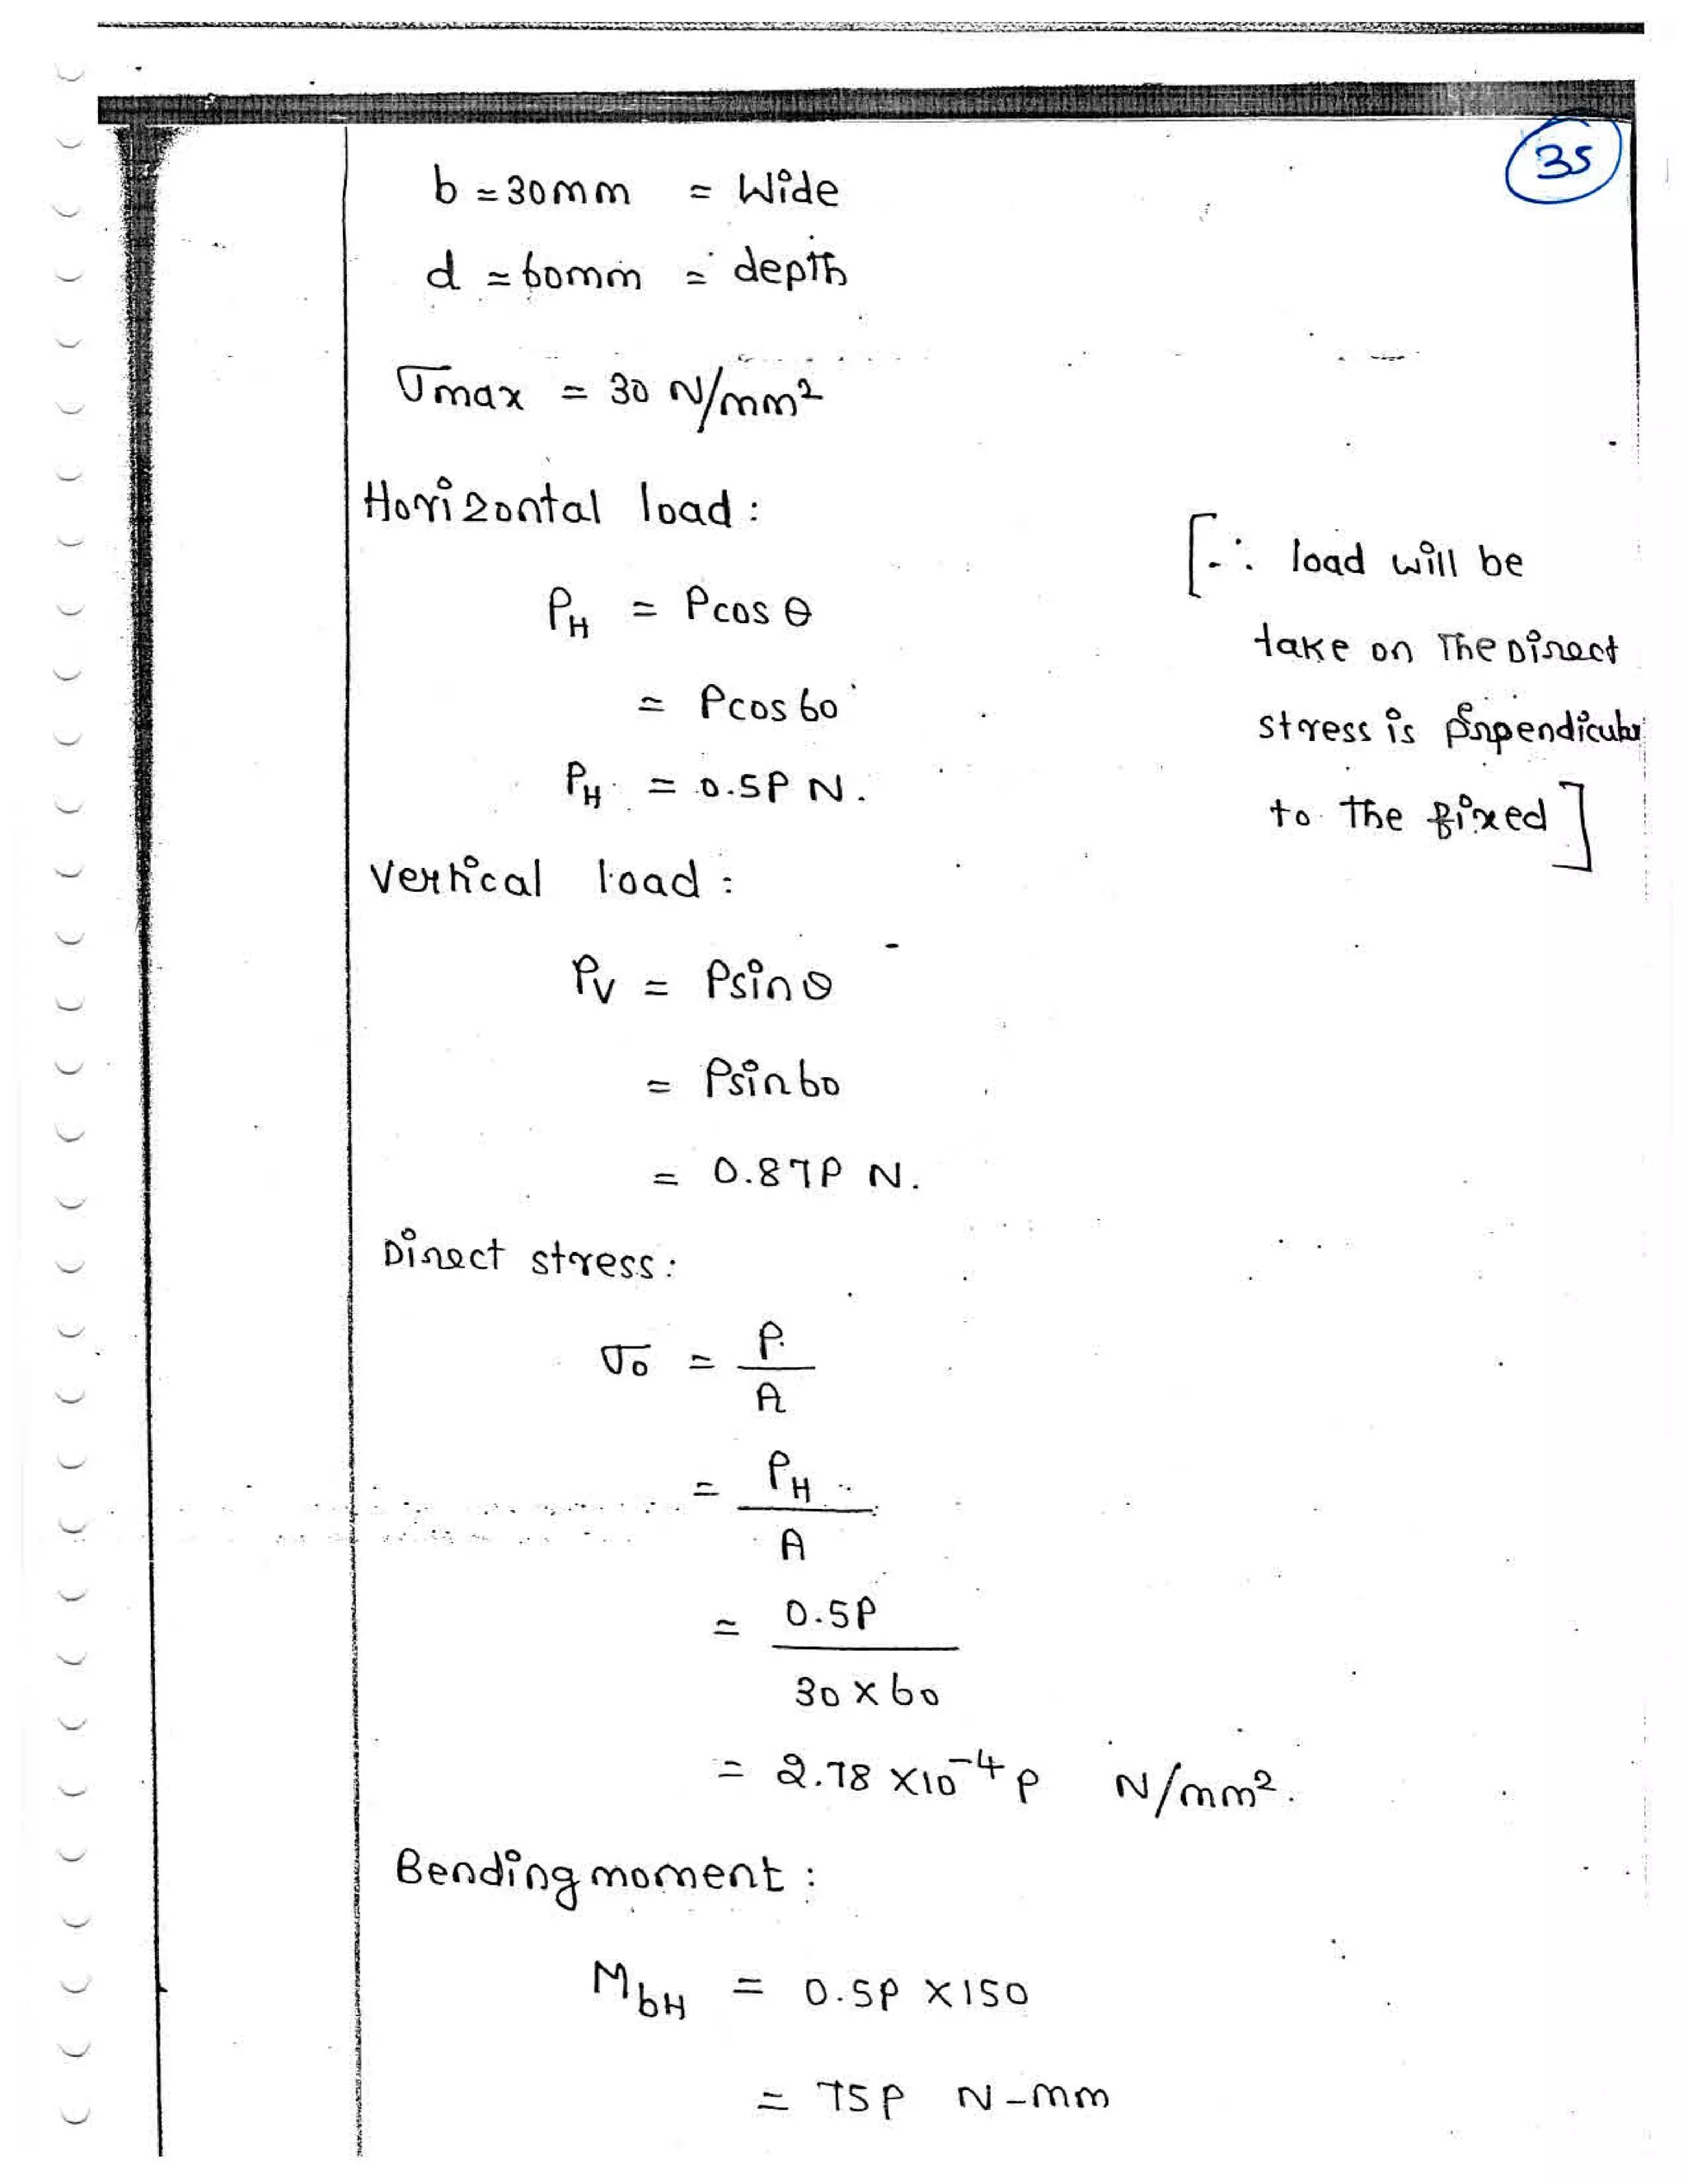 35
b = 30mm = Wide
d = 60mm = depth
σmax = 30 N/mm²
Horizontal load :
[∵ load will be
take on The Direct
stress is perpendicular
to the fixed]
PH = Pcos θ
= Pcos 60
PH = 0.5P N.
Vertical load :
PV = Psinθ
= Psin60
= 0.87P N.
Direct stress :
σo = P/A
= PH/A
= 0.5P/30 × 60
= 2.78 ×10⁻⁴ P N/mm².
Bending moment :
MbH = 0.5P × 150
= 75P N-mm